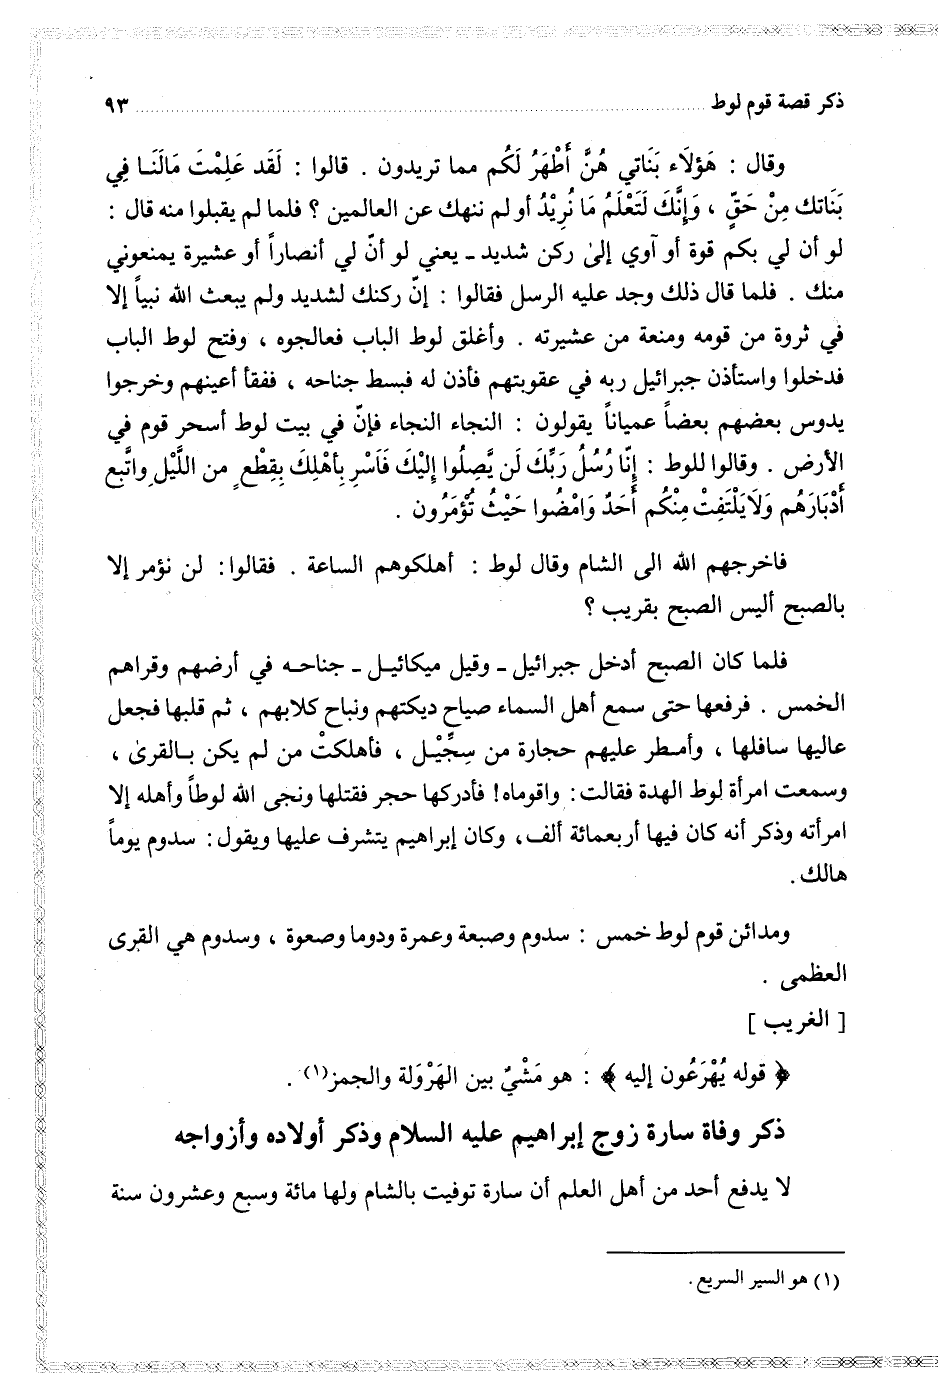 ذكر قصة قوم لوط ........................ ٩٣
وقال : هَؤلَاء بَنَاتي هُنَّ أَطْهَرُ لَكُم مما تريدون . قالوا : لَقَد عَلِمْتَ مَالَنَـا فِي
بَنَاتك مِنْ حَقٍّ ، وَإِنَّكَ لَتَعْلَمُ مَا نُرِيْدُ أو لم ننهك عن العالمين ؟ فلما لم يقبلوا منه قال :
لو أن لي بكم قوة أو آوي إلىٰ ركن شديد ـ يعني لو أنّ لي أنصاراً أو عشيرة يمنعوني
منك . فلما قال ذلك وجد عليه الرسل فقالوا : إنّ ركنك لشديد ولم يبعث الله نبياً إلا
في ثروة من قومه ومنعة من عشيرته . وأغلق لوط الباب فعالجوه ، وفتح لوط الباب
فدخلوا واستأذن جبرائيل ربه في عقوبتهم فأذن له فبسط جناحه ، ففقأ أعينهم وخرجوا
يدوس بعضهم بعضاً عمياناً يقولون : النجاء النجاء فإنّ في بيت لوط أسحر قوم في
الأرض . وقالوا للوط : إِنَّا رُسُلُ رَبِّكَ لَن يَّصِلُوا إِلَيْكَ فَأَسْرِ بِأَهْلِكَ بِقِطْعٍ من اللَّيْلِ واتَّبع
أَدْبَارَهُم وَلَا يَلْتَفِتْ مِنْكُم أَحَدٌ وَامْضُوا حَيْثُ تُؤْمَرُون .
فاخرجهم الله الى الشام وقال لوط : أهلكوهم الساعة . فقالوا : لن نؤمر إلا
بالصبح أليس الصبح بقريب ؟
فلما كان الصبح أدخل جبرائيل ـ وقيل ميكائيـل ـ جناحـه في أرضهم وقراهم
الخمس . فرفعها حتى سمع أهل السماء صياح ديكتهم ونباح كلابهم ، ثم قلبها فجعل
عاليها سافلها ، وأمـطر عليهم حجارة من سِجِّيْل ، فأهلكتْ من لم يكن بـالقرىٰ ،
وسمعت امرأة لوط الهدة فقالت : واقوماه ! فأدركها حجر فقتلها ونجى الله لوطاً وأهله إلا
امرأته وذكر أنه كان فيها أربعمائة ألف ، وكان إبراهيم يتشرف عليها ويقول : سدوم يوماً
هالك .
ومدائن قوم لوط خمس : سدوم وصبعة وعمرة ودوما وصعوة ، وسدوم هي القرى
العظمى .
[ الغريب ]
﴿ قوله يُهْرَعُون إليه ﴾ : هو مَشْيٌ بين الهَرْوَلة والجمز(١) .
ذكر وفاة سارة زوج إبراهيم عليه السلام وذكر أولاده وأزواجه
لا يدفع أحد من أهل العلم أن سارة توفيت بالشام ولها مائة وسبع وعشرون سنة
(١) هو السير السريع .